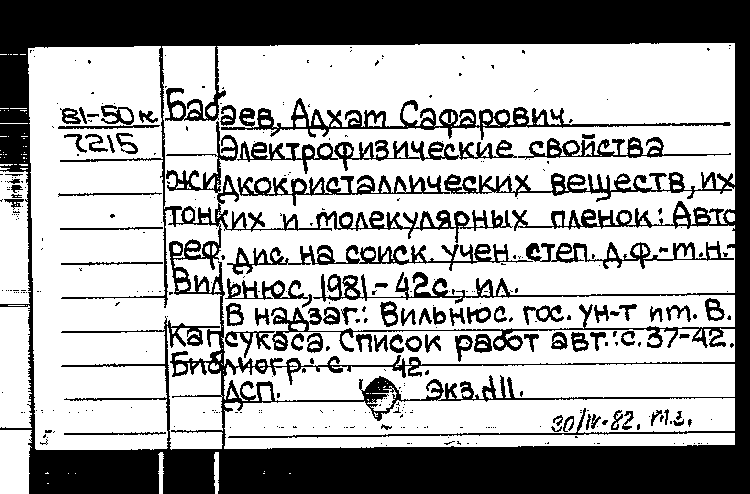 81-50к Бабаев, Адхат Сафарович.
7215 Электрофизические свойства
жидкокристаллических веществ, их
тонких и молекулярных пленок: Авто
реф. дис. на соиск. учен. степ. д.ф.-м.н.-
Вильнюс, 1981.- 42с., ил.
В надзаг.: Вильнюс. гос. ун-т им. В.
Капсукаса. Список работ авт.: с.37-42.
Библиогр.: с. 42.
ДСП. Экз.№11.
30/IV-82.
5